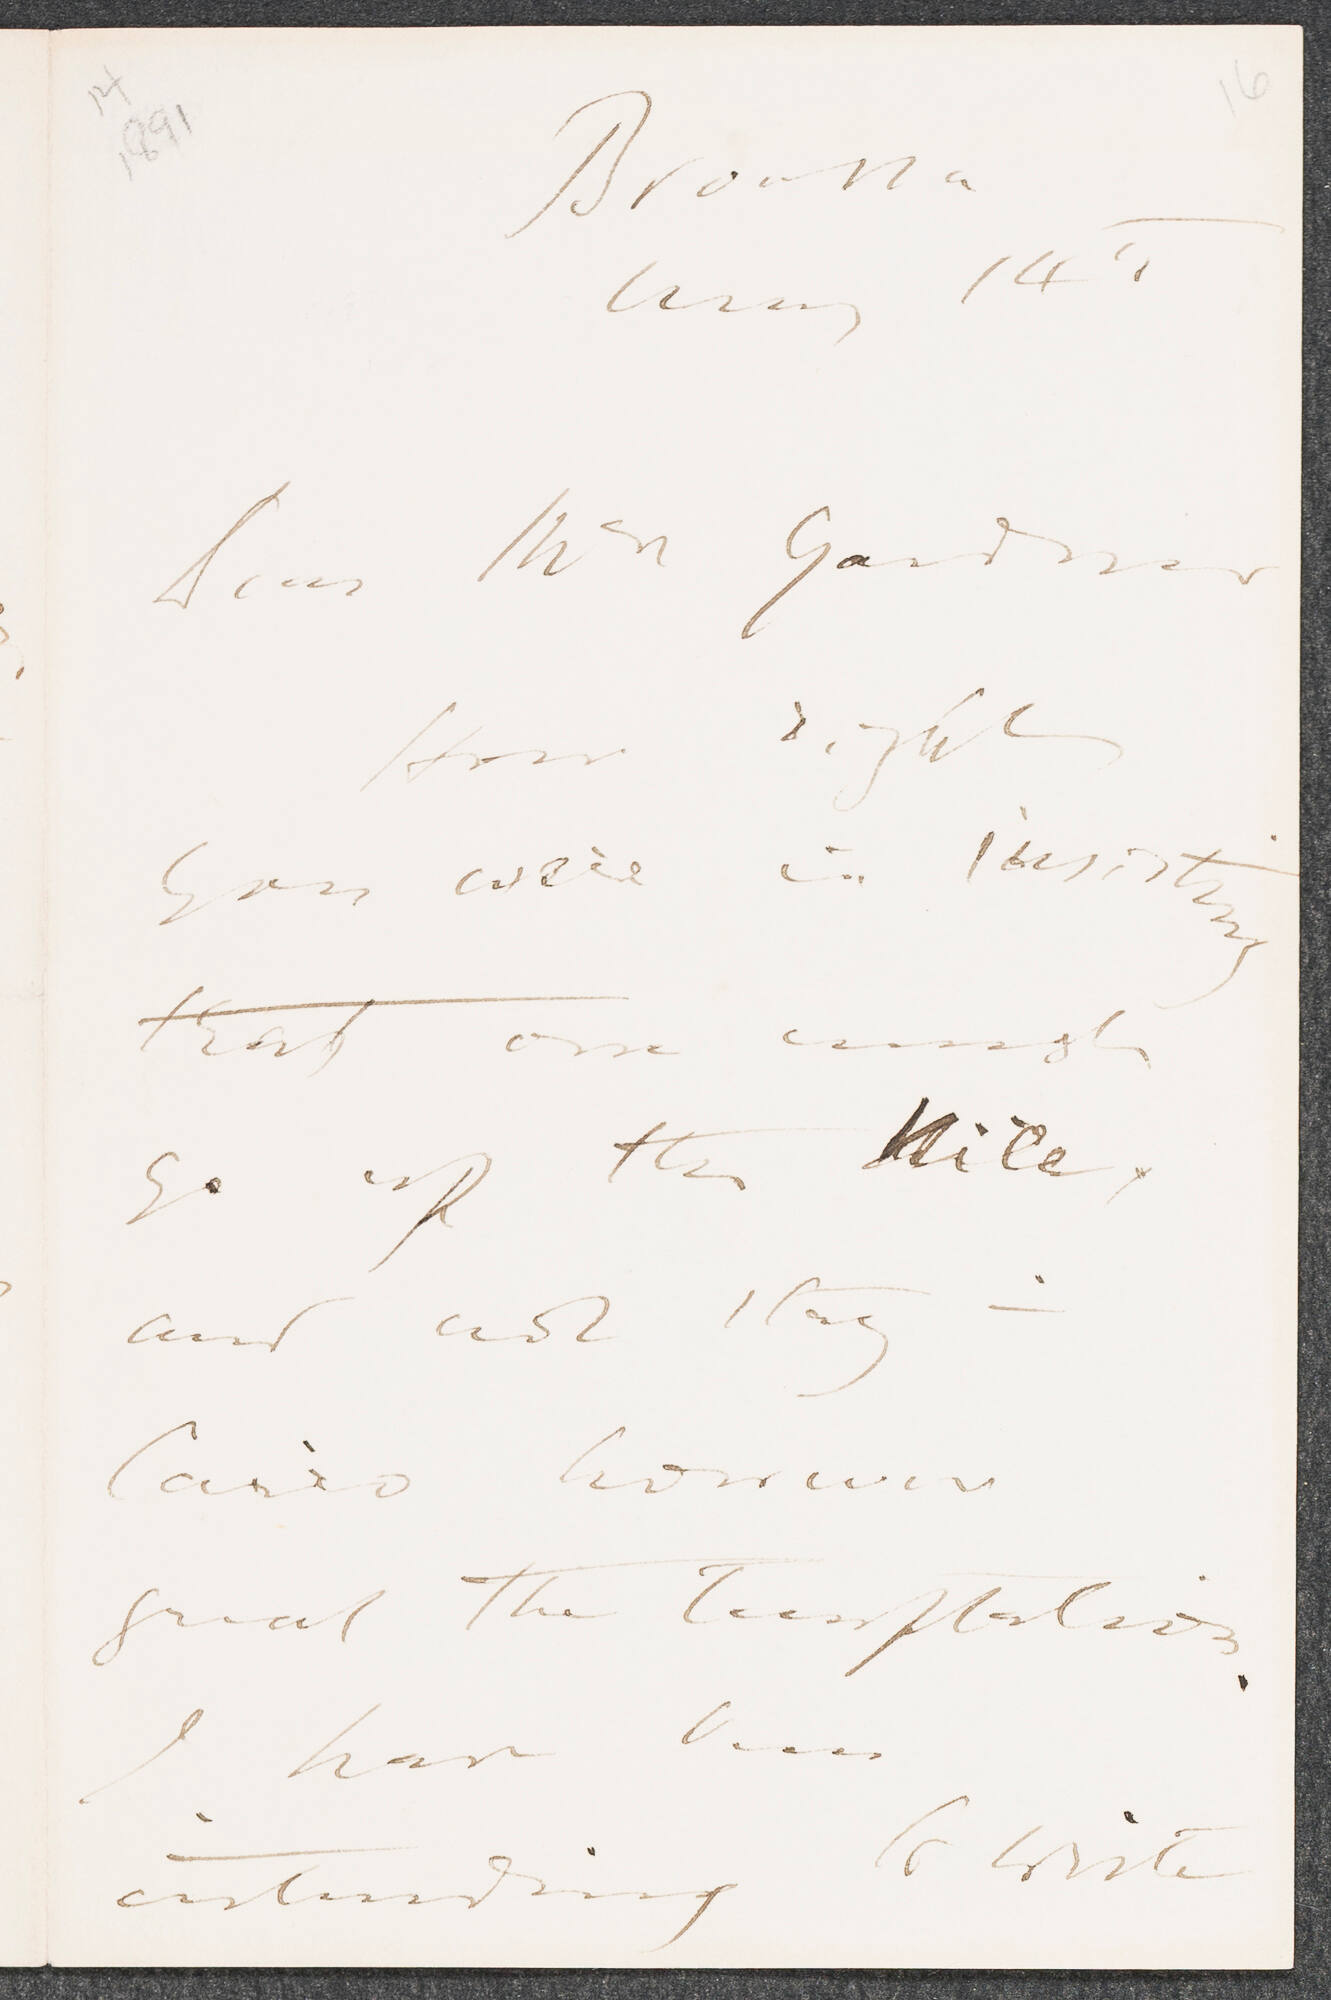 14
1891
16
Broussa
May 14th
Dear Mrs Gardner
How right
you were in insisting
that one must
go up the Nile,
and not stay in
Cairo however
great the temptation.
I have been
intending to write